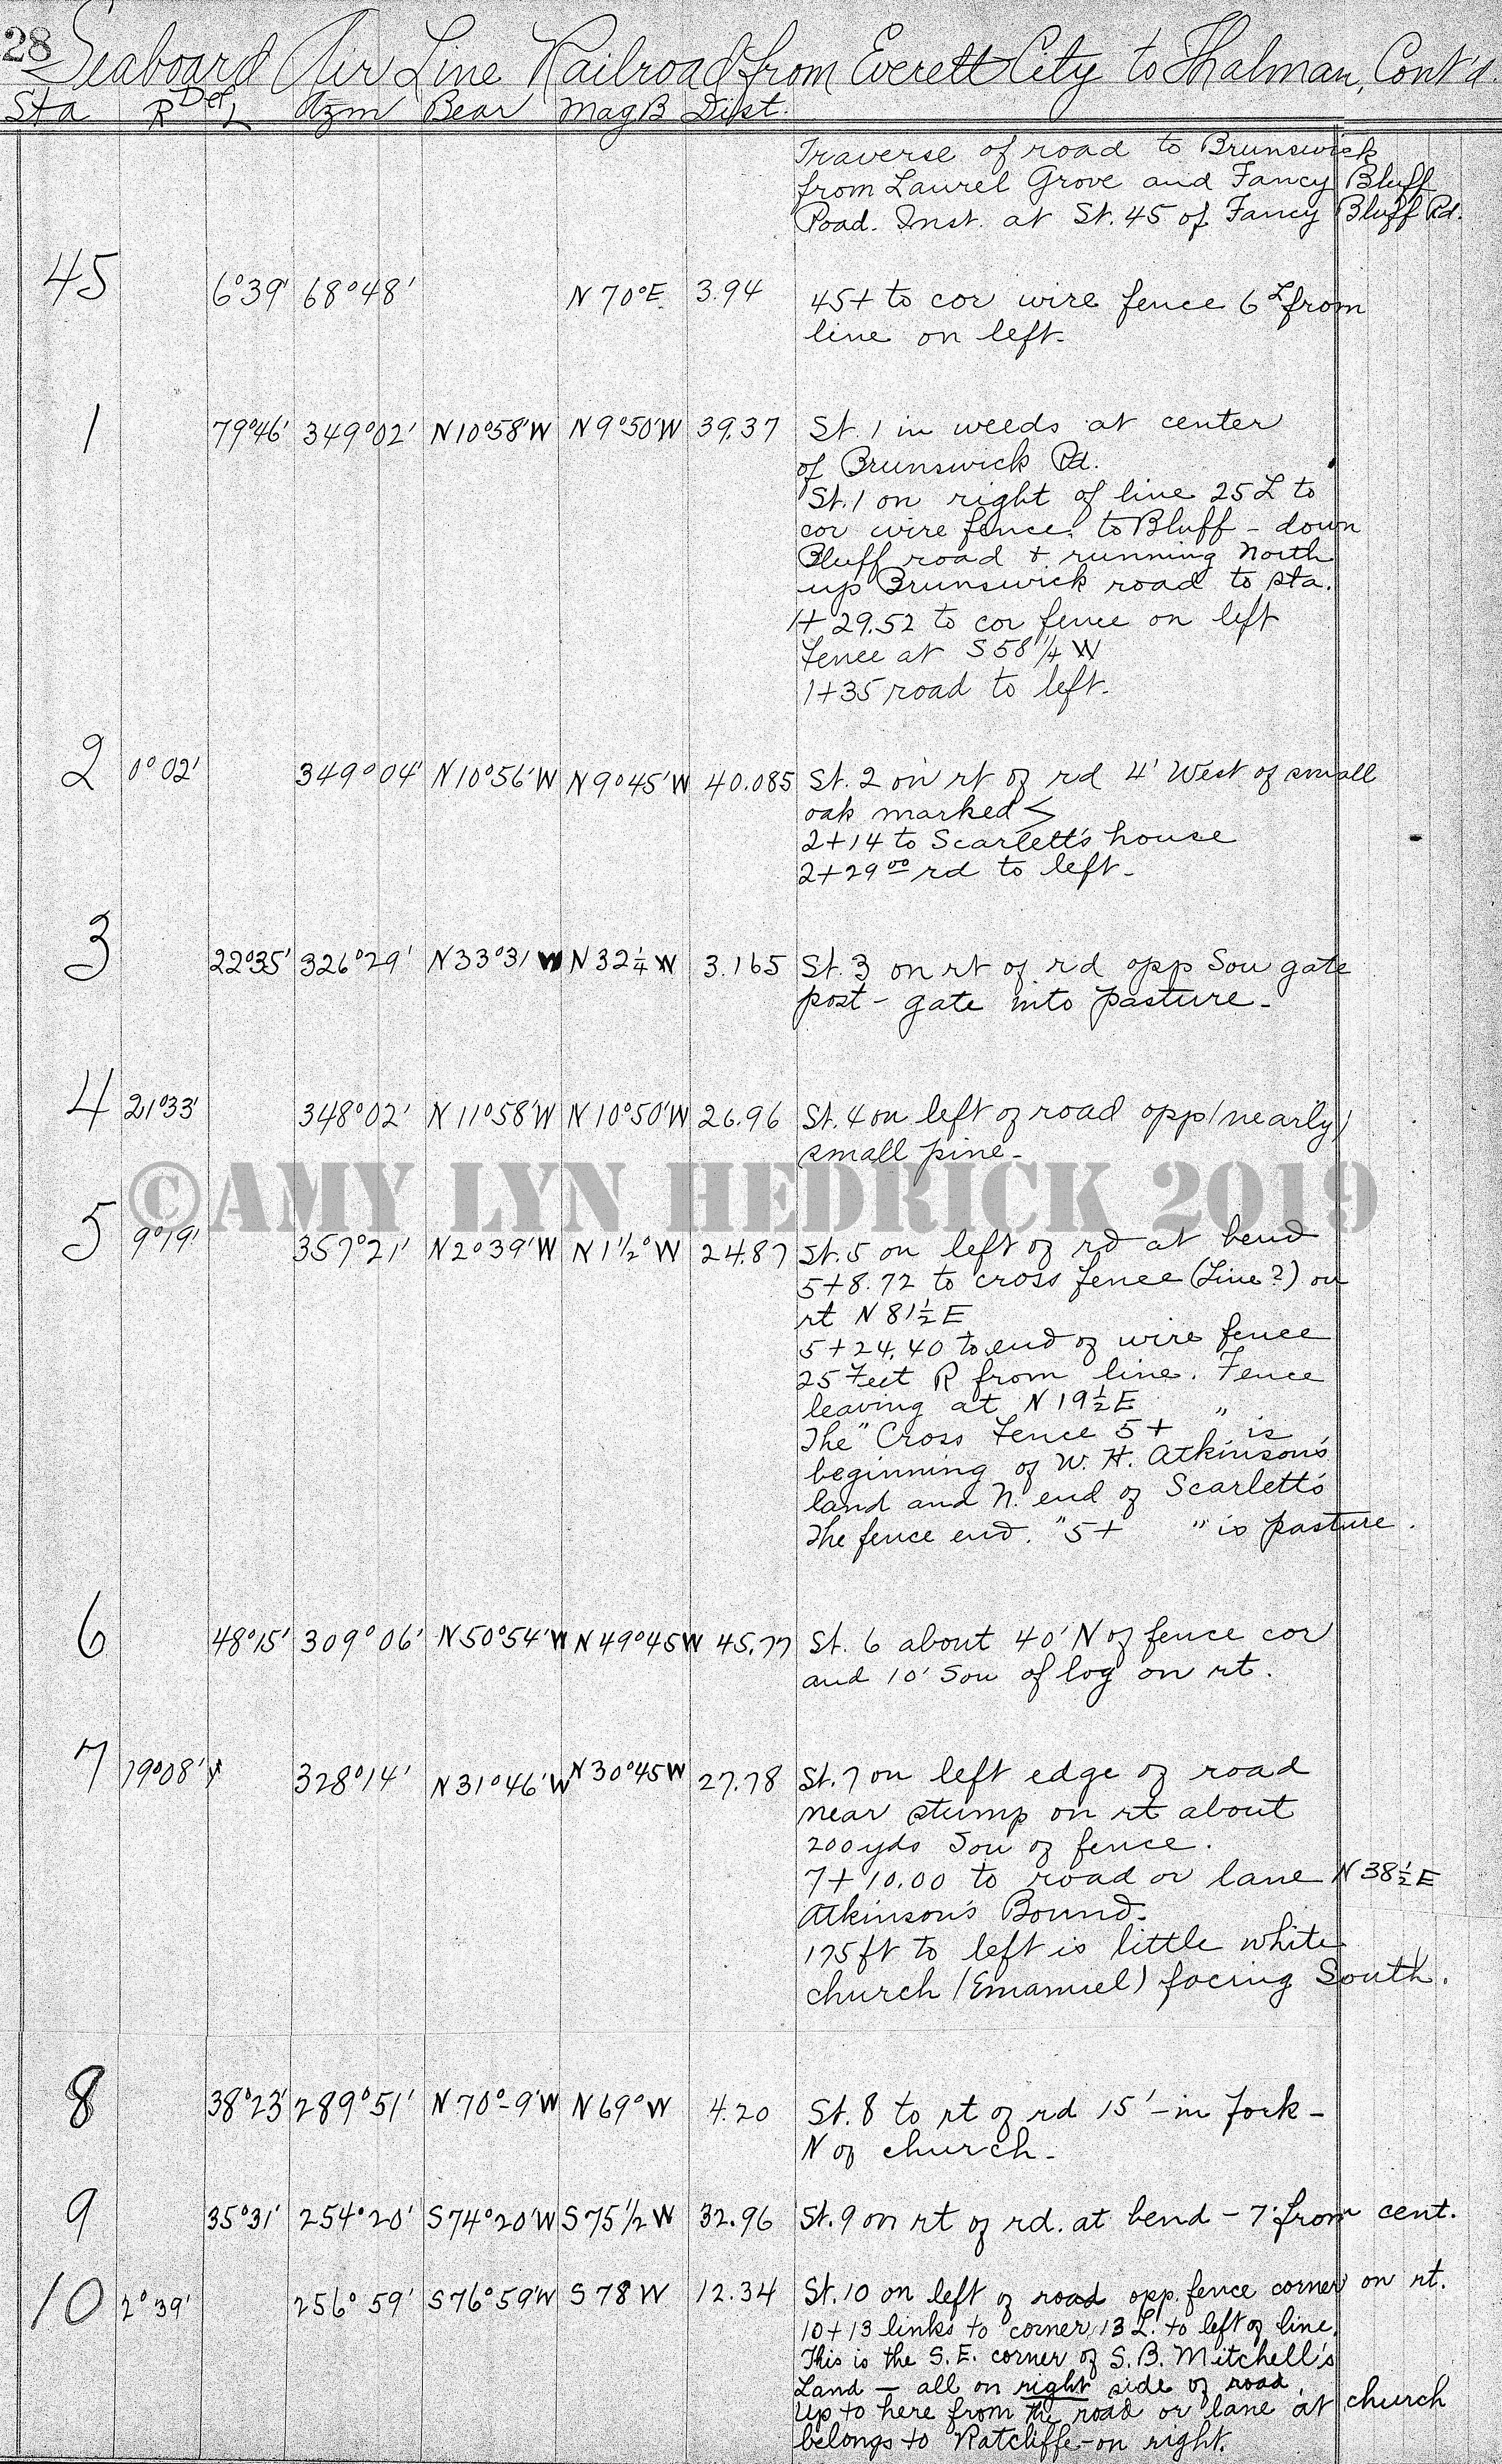 28
Seaboard Air Line Railroad from Everett City to Thalman, Cont'd.
Sta R Def L Azm Bear Mag B Dist.
Traverse of road to Brunswick
from Laurel Grove and Fancy Bluff
Road. Inst. at St. 45 of Fancy Bluff Rd.
45 6°39' 68°48' N 70°E 3.94 45+ to cor wire fence 6 L from
line on left.
1 79°46' 349°02' N10°58'W N9°50'W 39.37 St. 1 in weeds at center
of Brunswick Rd.
St. 1 on right of line 25 L to
cor wire fence. to Bluff - down
Bluff road & running North
up Brunswick road to sta.
1+ 29.52 to cor fence on left
Fence at S 58 1/4 W
1+35 road to left.
2 0°02' 349°04' N10°56'W N9°45'W 40.085 St. 2 on rt of rd 4' West of small
oak marked <
2+14 to Scarlett's house
2+29 00 rd to left-
3 22°35' 326°29' N33°31 W N 32 1/4 W 3.165 St. 3 on rt of rd opp Sou gate
post - gate into pasture -
4 21°33' 348°02' N 11°58'W N 10°50'W 26.96 St. 4 on left of road opp (nearly)
small pine -
©AMY LYN HEDRICK 2019
5 9°19' 357°21' N2°39'W N 1 1/2° W 24.87 St. 5 on left of rd at bend
5+8.72 to cross fence (Line?) on
rt N 81 1/2 E
5+24.40 to end of wire fence
25 Feet R from line. Fence
leaving at N 19 1/2 E
The "Cross Fence 5+ " is
beginning of W. H. Atkinson's
land and N. end of Scarlett's
The fence end. "5+ " is pasture.
6 48°15' 309°06' N50°54'W N49°45W 45.77 St. 6 about 40' N of fence cor
and 10' Sou of log on rt.
7 19°08' 328°14' N31°46'W N30°45W 27.78 St. 7 on left edge of road
near stump on rt about
200 yds Sou of fence.
7+ 10.00 to road or lane N 38 1/2 E
Atkinson's Bound.
175 ft to left is little white
church (Emanuel) facing South.
8 38°23' 289°51' N 70°-9'W N 69° W 4.20 St. 8 to rt of rd 15' - in fork -
N of church -
9 35°31' 254°20' S74°20'W S75 1/2 W 32.96 St. 9 on rt of rd. at bend - 7' from cent.
10 2°39' 256°59' S76°59'W S 78 W 12.34 St. 10 on left of road opp. fence corner on rt.
10+13 links to corner, 13 L. to left of line.
This is the S. E. corner of S. B. Mitchell's
Land - all on right side of road.
Up to here from the road or lane at church
belongs to Ratcliffe - on right.